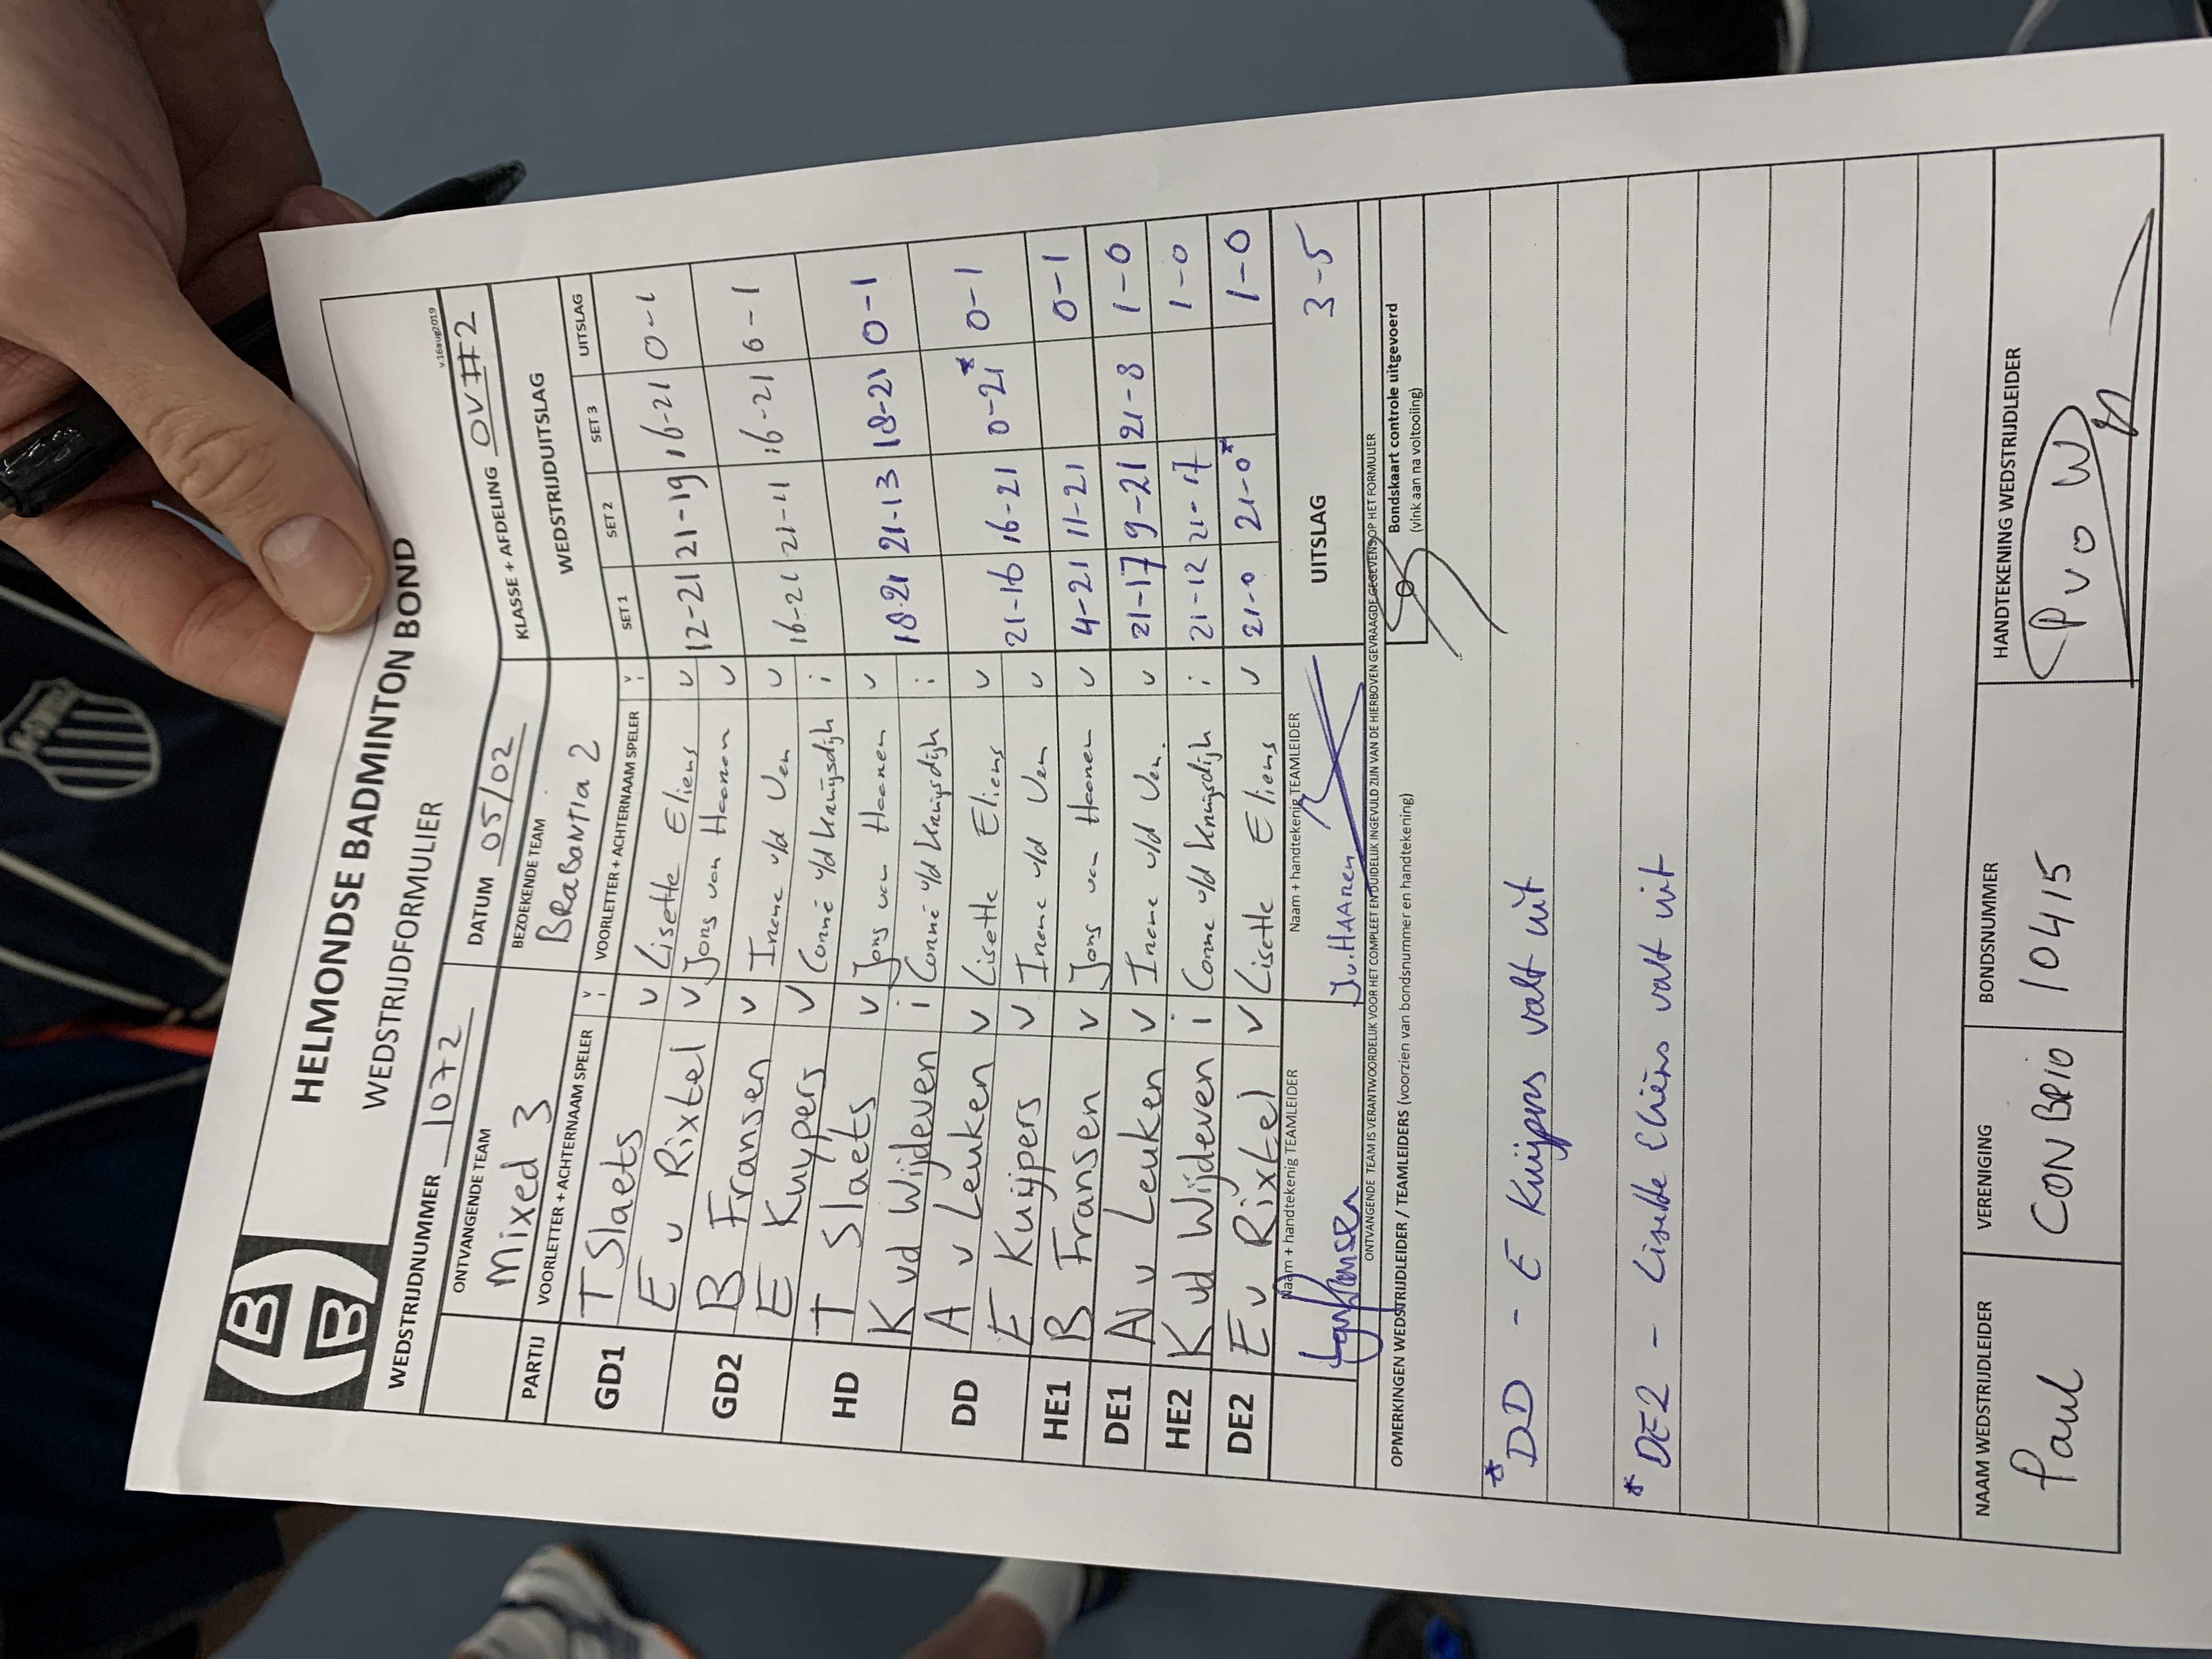 HELMONDSE BADMINTON BOND
WEDSTRIJDFORMULIER
v.16aug2019
WEDSTRIJDNUMMER 1072 DATUM 05/02 KLASSE + AFDELING OV#2
ONTVANGENDE TEAM BEZOEKENDE TEAM WEDSTRIJDUITSLAG
Mixed 3 BRaBantia 2
PARTIJ VOORLETTER + ACHTERNAAM SPELER V i VOORLETTER + ACHTERNAAM SPELER V i SET 1 SET 2 SET 3 UITSLAG
GD1 T Slaets v Lisette Eliens v 12-21 21-19 16-21 0-1
E v Rixtel v Jons van Haanen v
GD2 B Fransen v Irene v/d Ven v 16-21 21-11 16-21 0-1
E Kuijpers v Corné v/d Kruijsdijk i
HD T Slaets v Jons van Haanen v 18-21 21-13 18-21 0-1
K vd Wijdeven i Corné v/d Kruijsdijk i
DD A v Leuken v Lisette Eliens v 21-16 16-21 0-21* 0-1
E Kuijpers v Irene v/d Ven v
HE1 B Fransen v Jons van Haanen v 4-21 11-21 0-1
DE1 A v Leuken v Irene v/d Ven. v 21-17 9-21 21-8 1-0
HE2 K vd Wijdeven i Corne v/d Kruijsdijk i 21-12 21-17 1-0
DE2 E v Rixtel v Lisette Eliens v 21-0 21-0* 1-0
Naam + handtekenig TEAMLEIDER Naam + handtekenig TEAMLEIDER UITSLAG 3-5
J.v.HAAnen
ONTVANGENDE TEAM IS VERANTWOORDELIJK VOOR HET COMPLEET EN DUIDELIJK INGEVULD ZIJN VAN DE HIERBOVEN GEVRAAGDE GEGEVENS OP HET FORMULIER
OPMERKINGEN WEDSTRIJDLEIDER / TEAMLEIDERS (voorzien van bondsnummer en handtekening) Bondskaart controle uitgevoerd
(vink aan na voltooling)
* DD - E Kuijpers valt uit
* DE2 - Lisette Eliëns valt uit
NAAM WEDSTRIJDLEIDER VERENIGING BONDSNUMMER HANDTEKENING WEDSTRIJDLEIDER
Paul CONBRIO 10415 P v o W